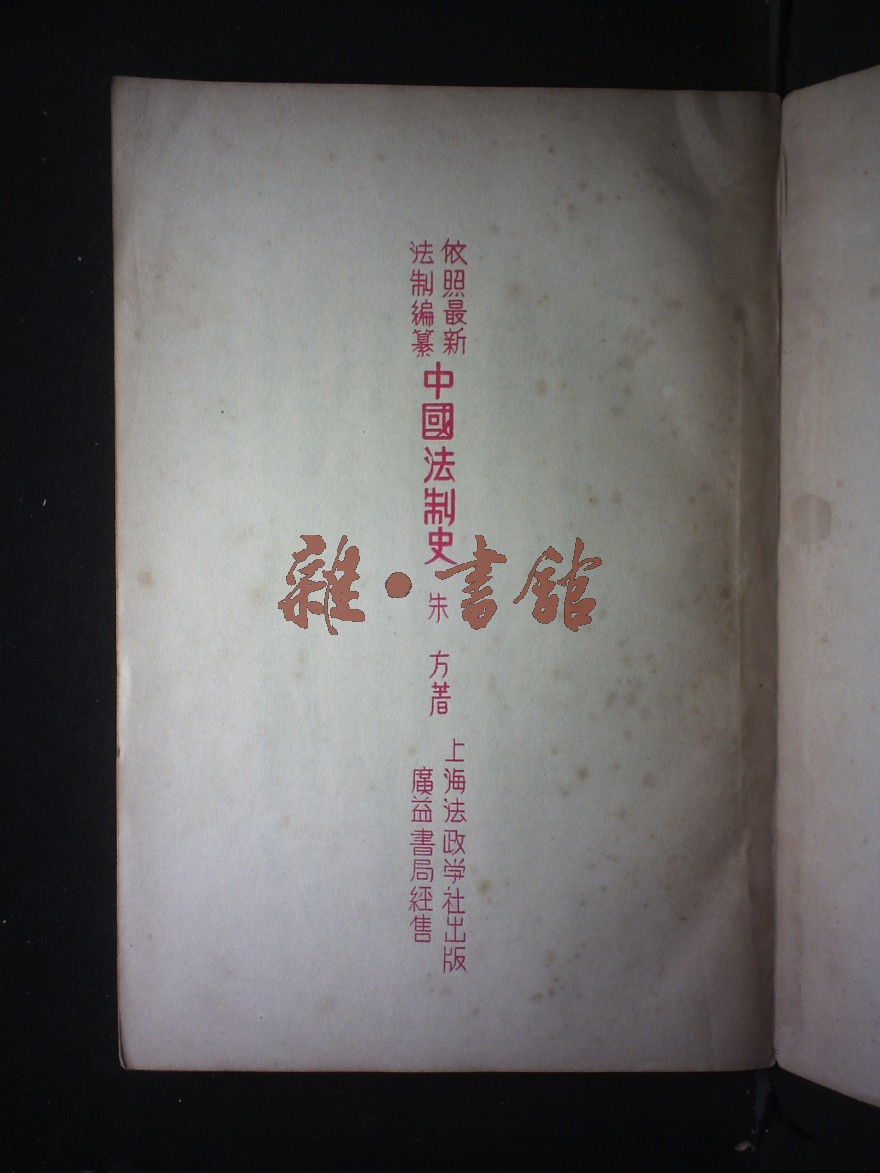 依照最新
法制編纂
中國法制史
朱方著
上海法政学社出版
廣益書局經售
雜·書館